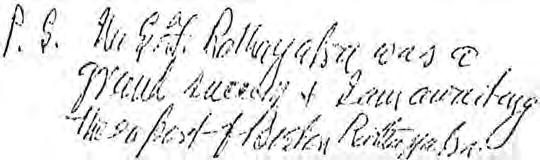 P.S. The S.F. Rathayatra was a
grand success & I am awaiting
the report of Boston Rathayatra.